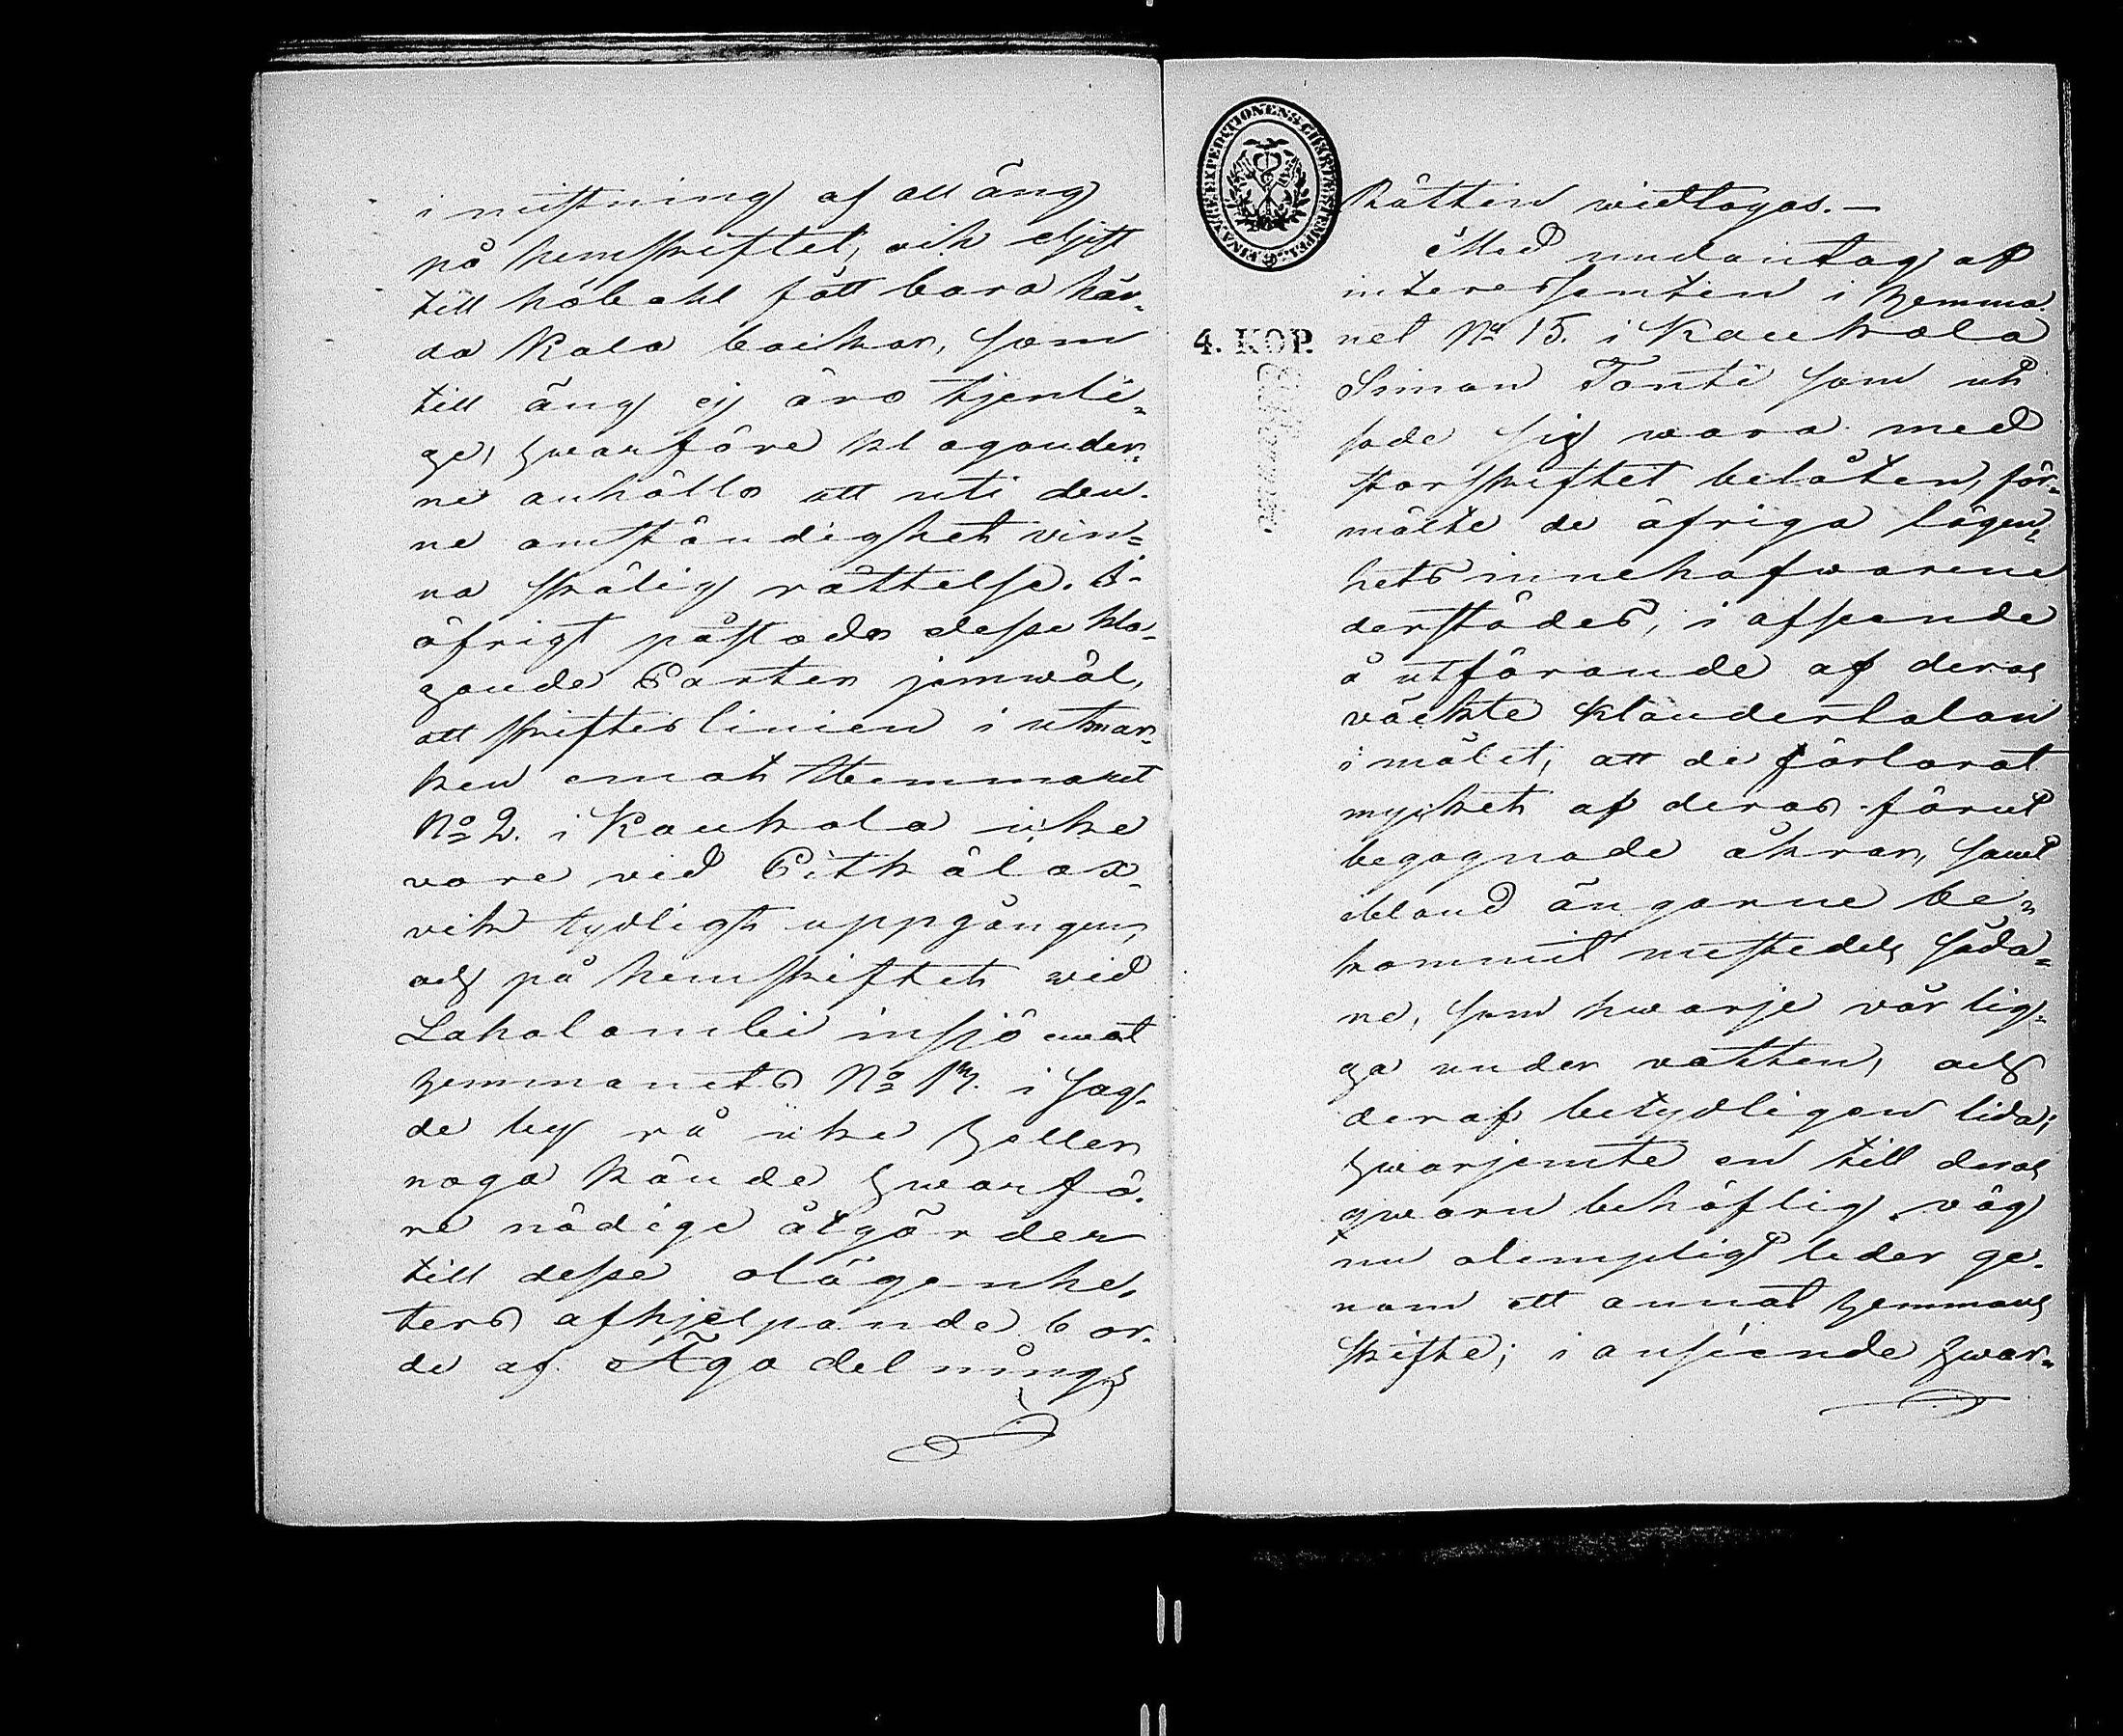 i mistning af all äng
på hemskiftet, och eljest
till höbohl fått bara hår-
da Kala backar, som
till äng ej äro tjenli-
ge, hvarföre klagander-
ne anhållo att uti den-
ne omständighet vin-
na skälig rättelse. I
öfrigt påstodo desse kla-
gande Parter jemwäl,
att skifteslinien i utmar-
ken emot Hemmanet
No 2. i Kaukola icke
vore vid Pitkälax-
vik tydligt uppgången,
och på hemskiftet wid
Laholambi insjö emot
hemmanets No i sag-
de by rå icke heller
noga kände hvarfö-
re nödige åtgärder
till desse olägenhe-
ters afhjelpande bor-
de af Ägodelnings
FINANCE EXPEDITIONENS CHARTÆ STEMPEL
4. KOP.
Rätten widtagas. —
Med undantag af
interessenten i hemma-
net No 15. i Kaukola
Simon Tonti som ut-
sade sig wara med
storskiftet belåten, för-
mälte de öfriga lägen-
hets innehafwarene
derstädes, i afseende
å utförande af deras
väckte klandertalan
i målet, att de förlorat
mycket af deras förut
begagnade åkrar, samt
ibland ängarne be-
kommit mestedels såda-
ne, som hwarje vår lig-
ga under vatten, och
deraf betydligen lida;
hwarjemte en till deras
qwarn behöflig väg
nu olempligt leder ge-
nom ett annat hemmans
skifte; i anseende hwar-